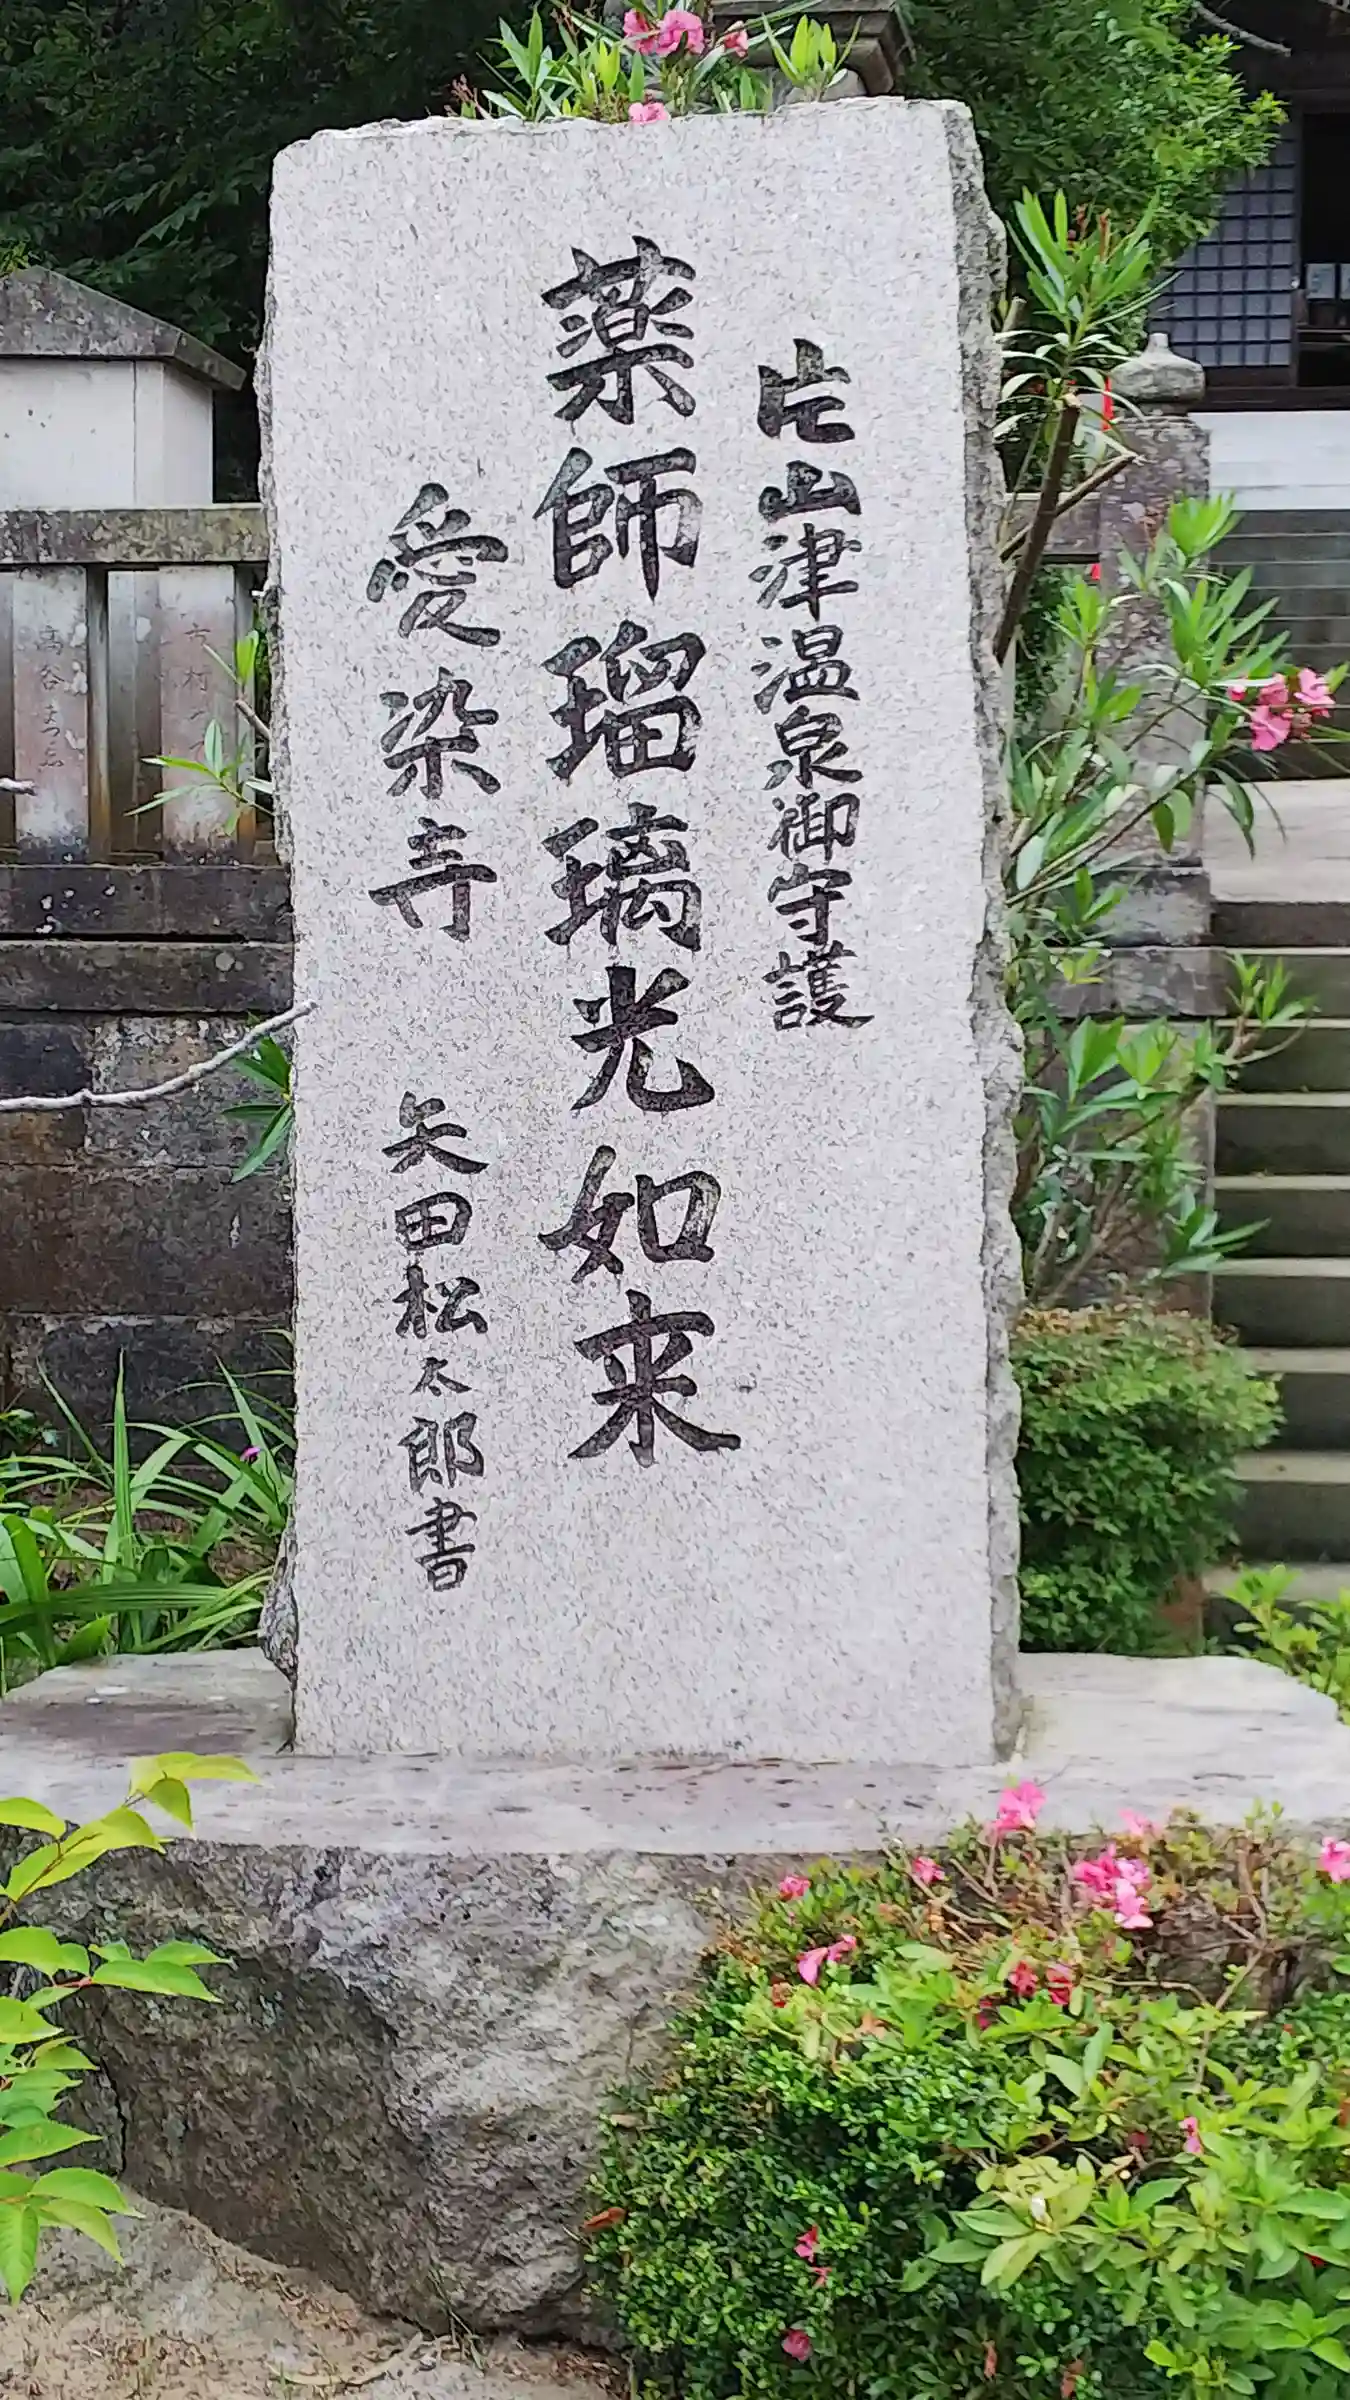 片山津温泉御守護
薬師瑠璃光如来
愛染寺 矢田松太郎書
高谷